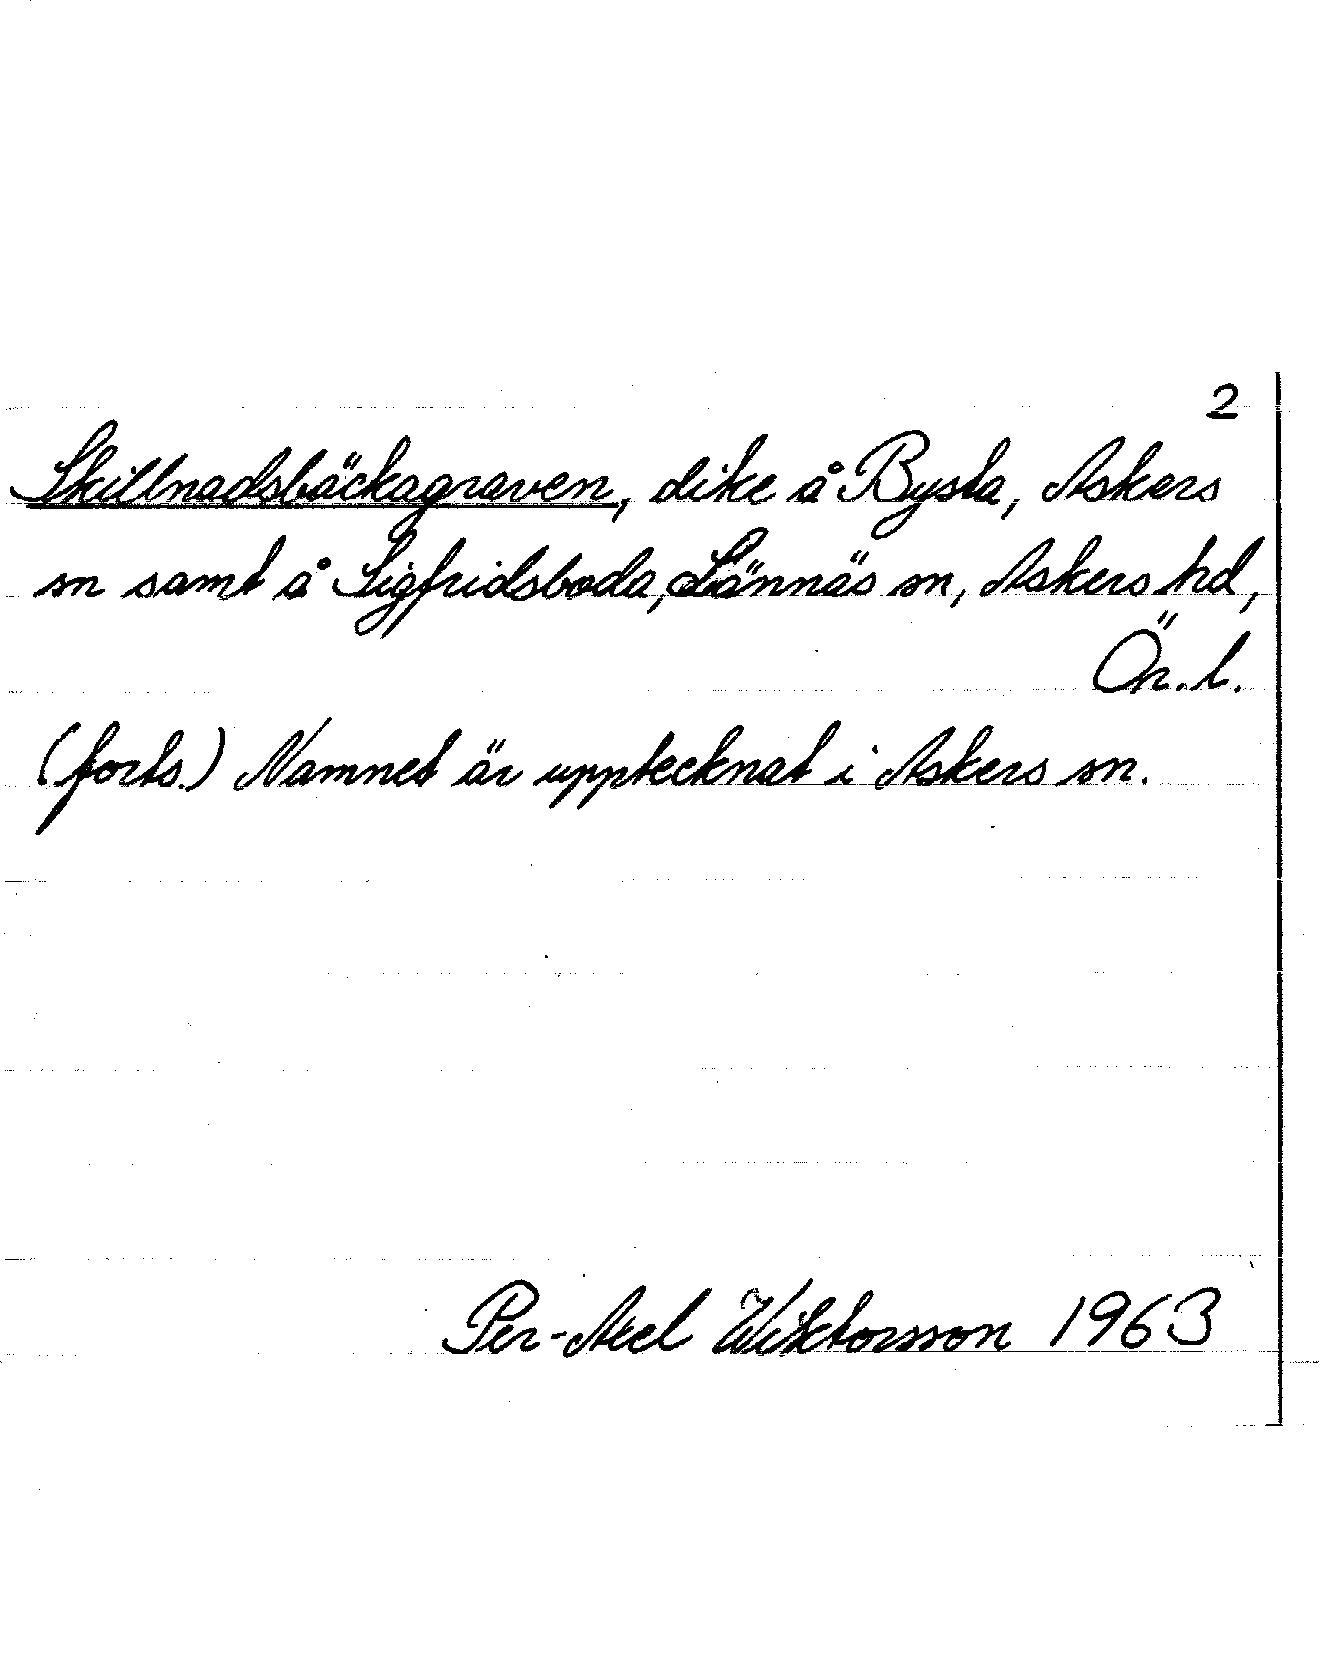 2
Skillnadsbäckagraven, dike å Bysta, Askers
sn samt å Sigfridsboda, Lännäs sn, Askers hd,
Ör. l.
(forts.) Namnet är upptecknat i Askers sn.
Per-Axel Wiktorsson 1963